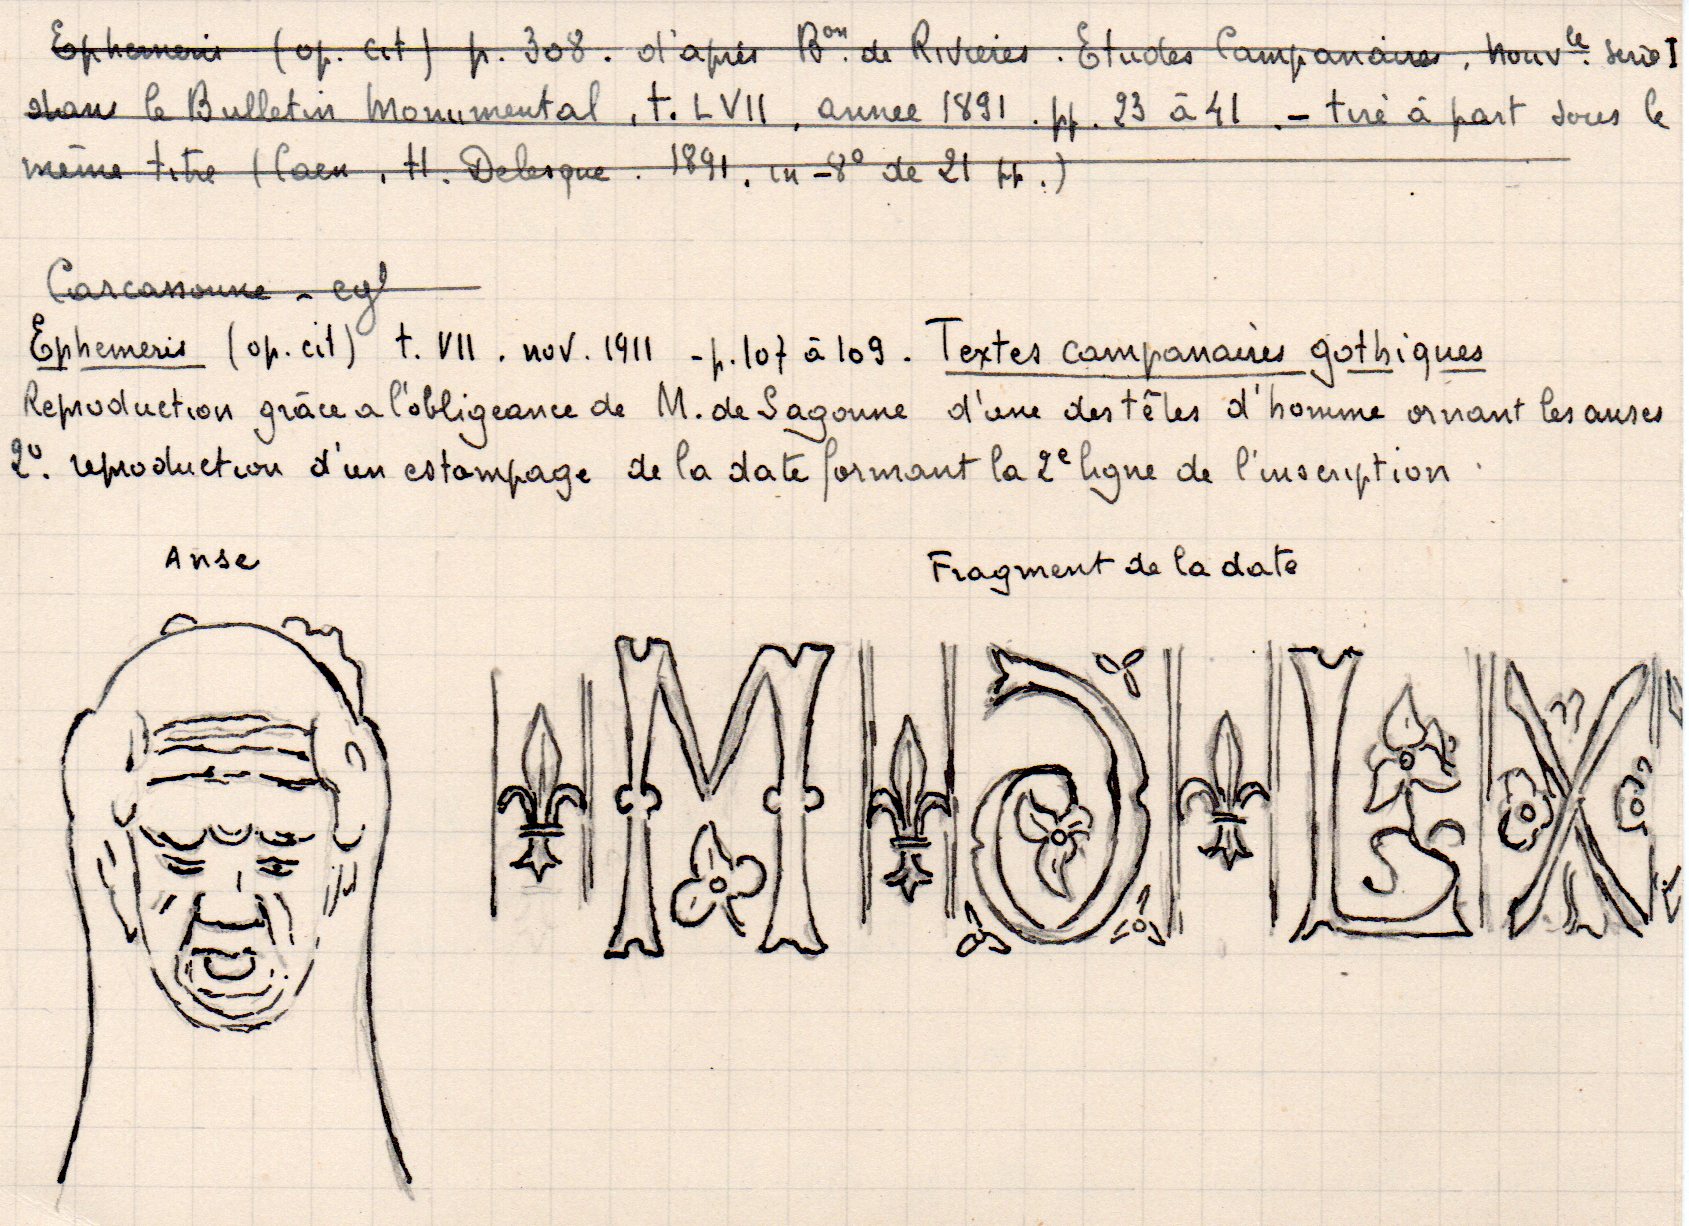 Ephemeris (op. cit) p. 308. d'après Bon. de Rivières. Etudes Campanaires, Nouvle. Serie I
dans le Bulletin Monumental, t. LVII, annee 1891. pp. 23 à 41. - tiré à part sous le
même titre (Caen, H. Delesque. 1891. in-8° de 21 pp.)
Carcassonne - egl
Ephemeris (op. cit) t. VII. nov. 1911 - p. 107 à 109. Textes campanaires gothiques
Reproduction grâce a l'obligeance de M. de Sagonne d'une des têtes d'homme ornant les anses
2°. reproduction d'un estampage de la date formant la 2e ligne de l'inscription.
Anse
Fragment de la date
M D L X